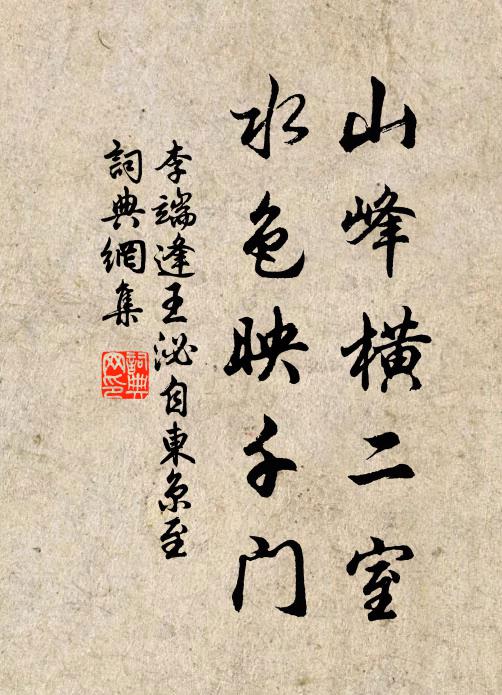 山峰橫二室
水色映千门
李端逢王泌自東京至
詞典網集
詞典
网印